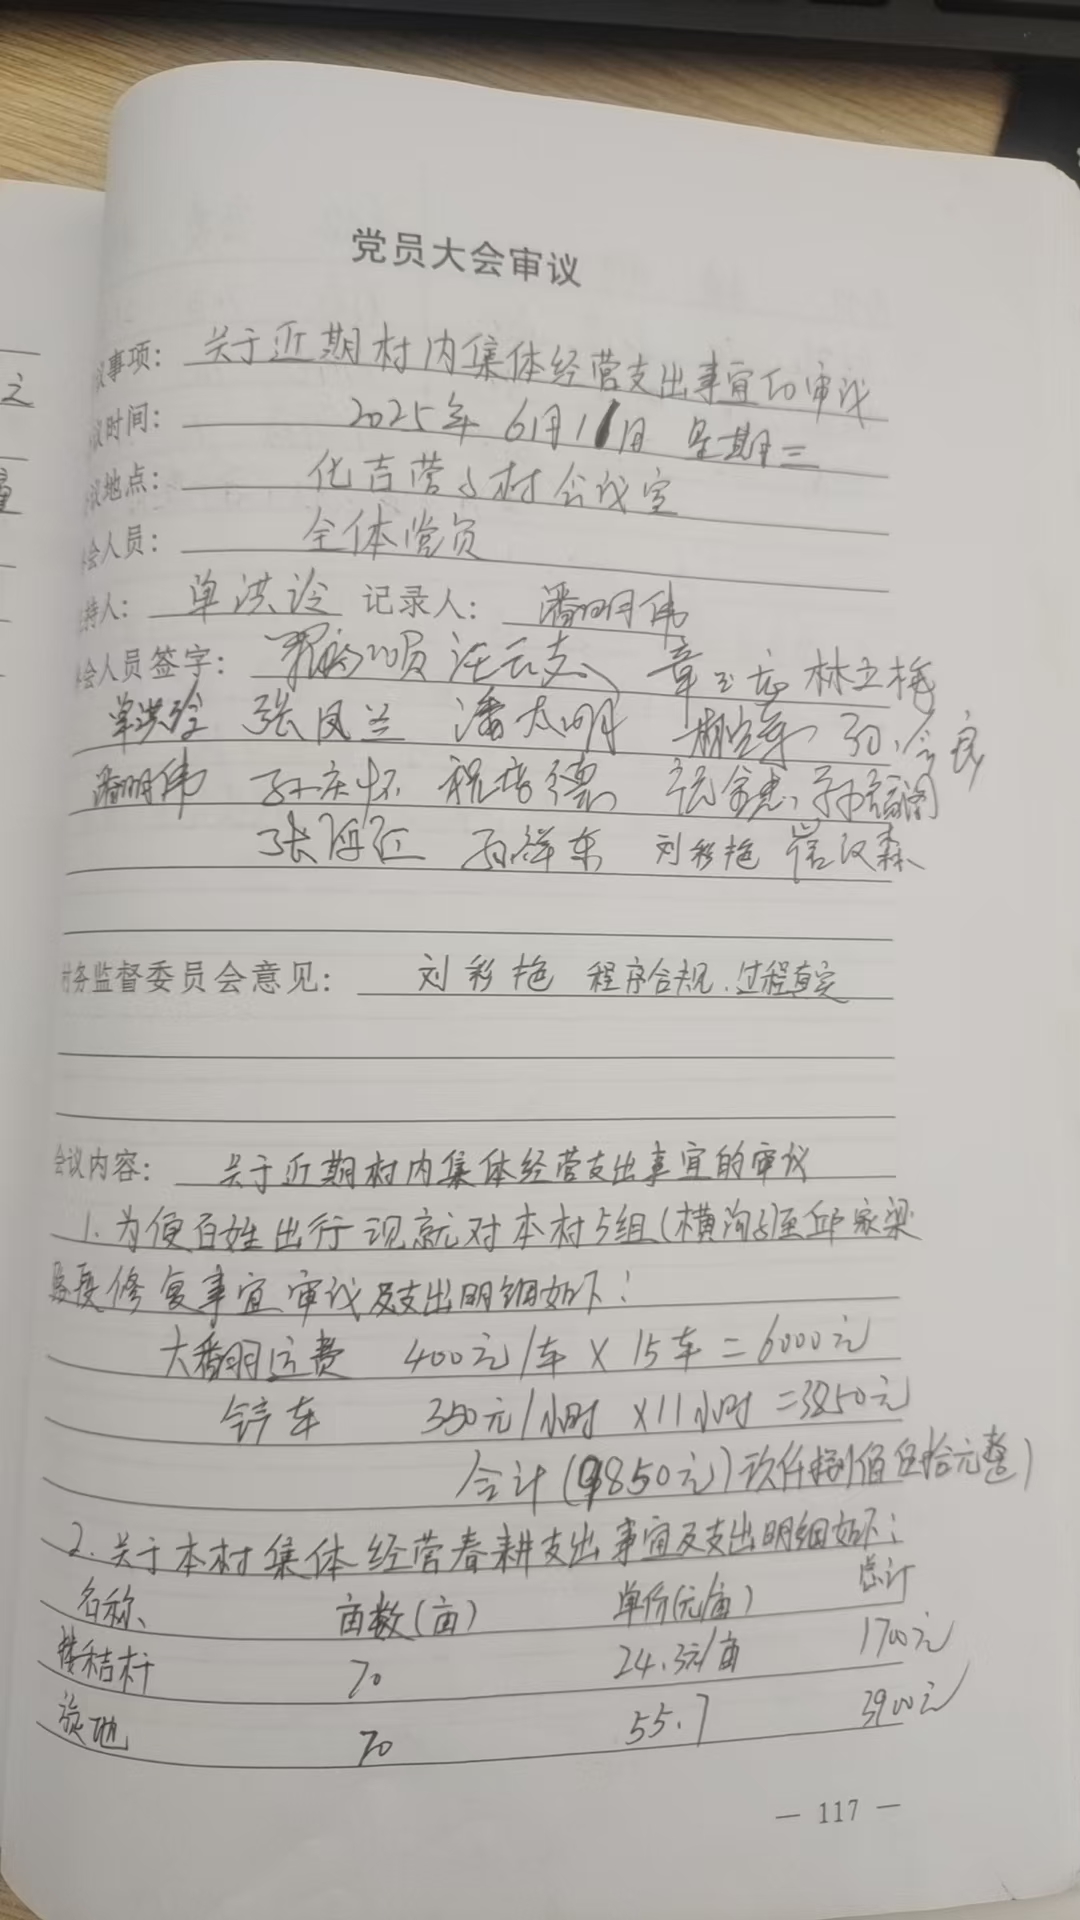 党员大会审议
议事项：关于近期村内集体经营支出事宜的审议
议时间：2025年6月11日 星期三
议地点：化吉营子村会议室
会人员：全体党员
持人：单洪玲 记录人：潘明伟
会人员签字：汪云支 章玉龙 林立梅
单洪玲 张凤兰 潘太明 孙会良
潘明伟 孙庆怀 程培德
张海江 孙祥东 刘彩艳 崔汉森
村务监督委员会意见：刘彩艳 程序合规、过程真实
会议内容：关于近期村内集体经营支出事宜的审议
1.为便百姓出行现就对本村5组(横沟子至邱家梁
路段修复事宜审议及支出明细如下：
大翻运费 400元/车×15车=6000元
铲车 350元/小时×11小时=3850元
合计(9850元)玖仟捌佰伍拾元整)
2.关于本村集体经营春耕支出事宜及支出明细如下：
名称 亩数(亩) 单价(元/亩) 总计
搂秸杆 70 24.3元/亩 1700元
旋地 70 55.7 3900元
— 117 —